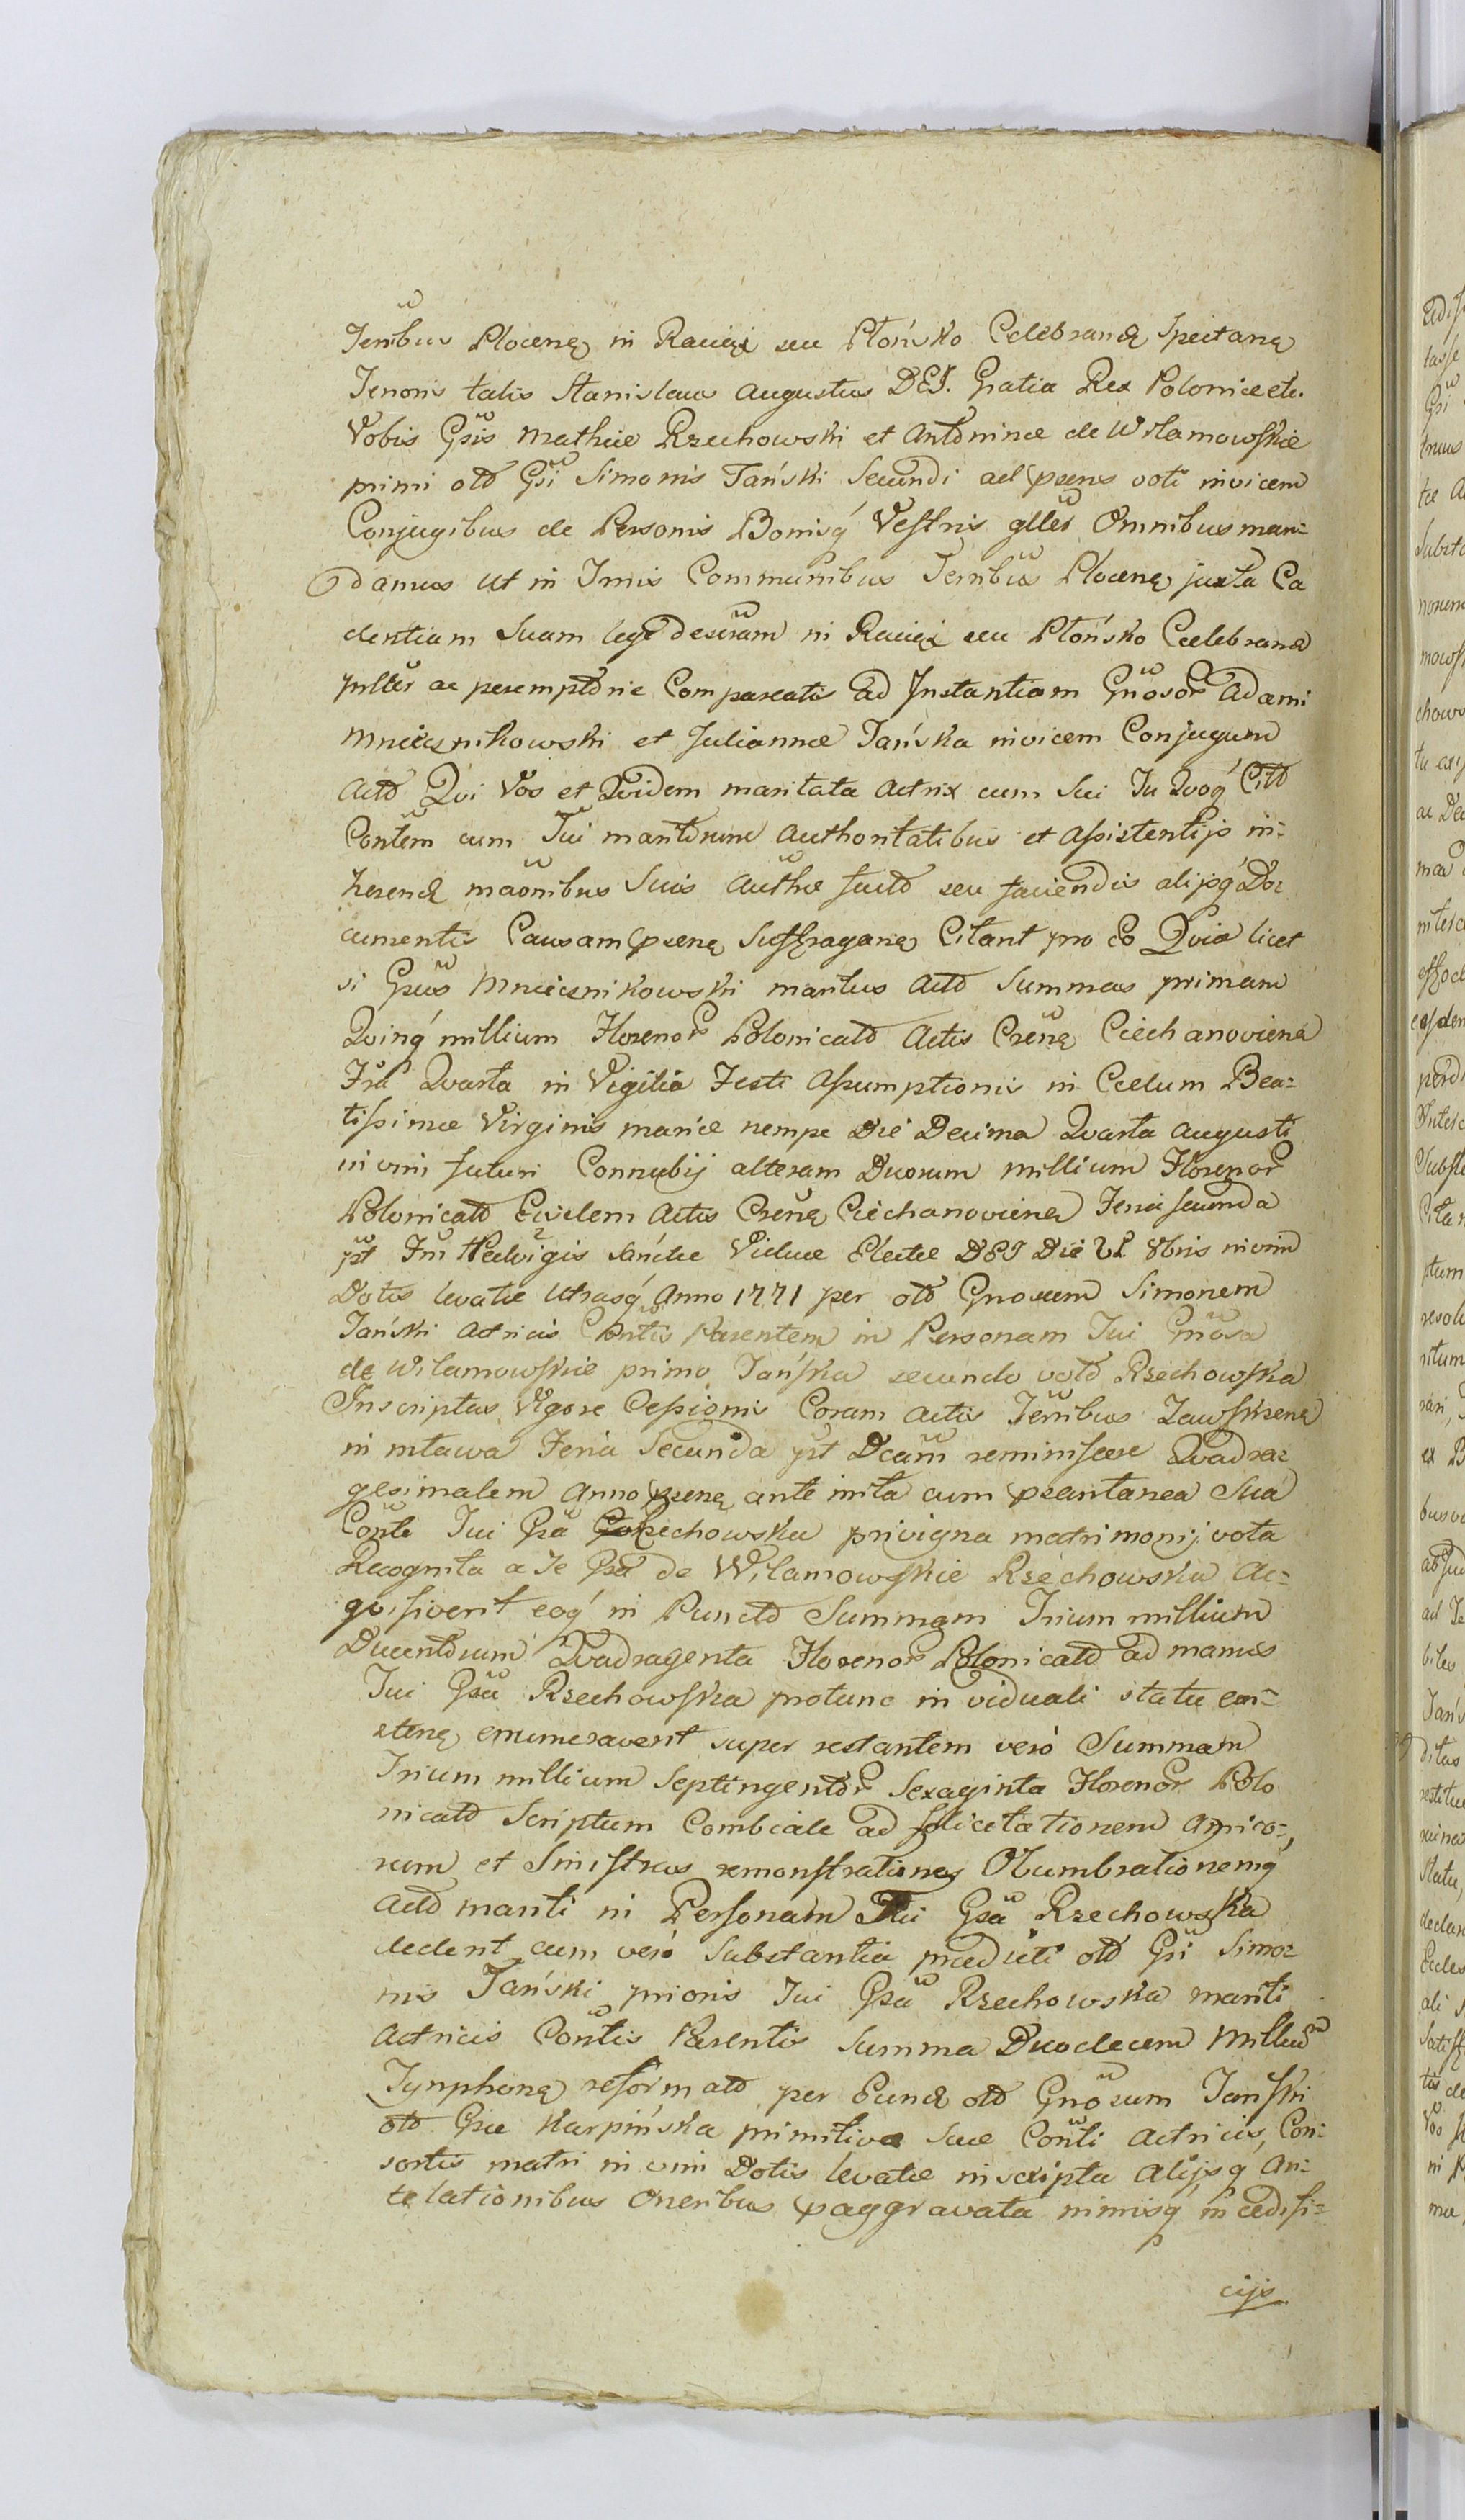 Tenibus Plocen in Raciąż seu Płońsko Celebrand Spectan
Tenoris talis Stanislaus Augustus DEI. Gratia Rex Poloniae etc.
Vobis Gsis Mathiae Rzechowski et Antoninae de Wilamowskie
primi olt Gsi Simonis Tański Secundi ad psens voti invicem
Conjugibus de Personis Bonisq Vestris gller Omnibus man=
damus ut in Tmis Communibus Teribus Plocen juxta Ca
dentiam Suam lege descram in Raciąż seu Płońsko Celebrand
pslter ac peremptorie Compareatis Ad Instantiam Gnosor Adami
Mniesznikowski et Juliannae Tańska invicem Conjugum
Acto Qui Vos et Quidem maritata Actrix cum Sui Tu Quoq Citt
Contem cum Tui maritorum Authoritatibus et Assistentijs in=
herend maonibus Suis Authae factis seu faciendis alijsq Do=
cumentis Causam psen Suffragan Citant pro Eo Quia licet
si Gsus Mniesznikowski maritus Acto Summas primam
Quinq millium Florenor Polonicalt Actis Csen Ciechanovien
Fra Quarta in Vigilia Festi Assumptionis in Coelum Bea=
tissimae Virginis mariae nempe Die Decima Quarta Augusti
in vim futuri Connubij alteram Duorum millium Florenor
Polonicalt Eisdem Actis Csen Ciechanovien Feria secunda
pst Fm Hedvigis Sanctae Viduae Electae DEI Die 21 8bris in vim
Dotis levatae Utrasq Anno 1771 per olt Gnosum Simonem
Tański Actricis Contis Parentem in Personam Tui Gnosa
de Wilamowskie primo Tańska secundo voto Rzechowska
Inscriptas Vigore Cessionis Coram Actis Teribus Zawskren
in Mława Feria Secunda pst Dcam reminiscere Quadra=
gesimalem Anno psen ante inita cum psentanea Sua
Conte Tui Gsa Rzechowska privigna matrimonij vota
Recognita a Te Gsa de Wilamowskie Rzechowska Ac=
quisiverit eoq in Puncto Summam Trium millium
Ducentorum Quadragenta Florenor Polonicalt ad manus
Tui Gsa Rzechowska protunc in viduali statu exi=
sten enumeraverit super restantem vero Summam
Trium millium Septingentor Sexaginta Florenor Polo
nicalt Scriptum Combiale ad solicitationem Amico=
rum et Sinistras remonstrationes Obumbrationemq
Acto mariti in Personam Tui Gsa Rzechowska
dederit cum vero Substantia praedicti olt Gsi Simo=
nis Tański prioris Tui Gsa Rzechowska mariti
Actricis Contis Parentis Summa Duodecem Millium
Tynphon reformato per Eund olt Gnosum Tański
olt Gsae Karpińska primitivae Suae Conti Actricis, Con=
sortis matri in vim Dotis levatae inscripta Alijsq An=
telationibus Oneribus paggravata nimisq in aedifi=
cijs